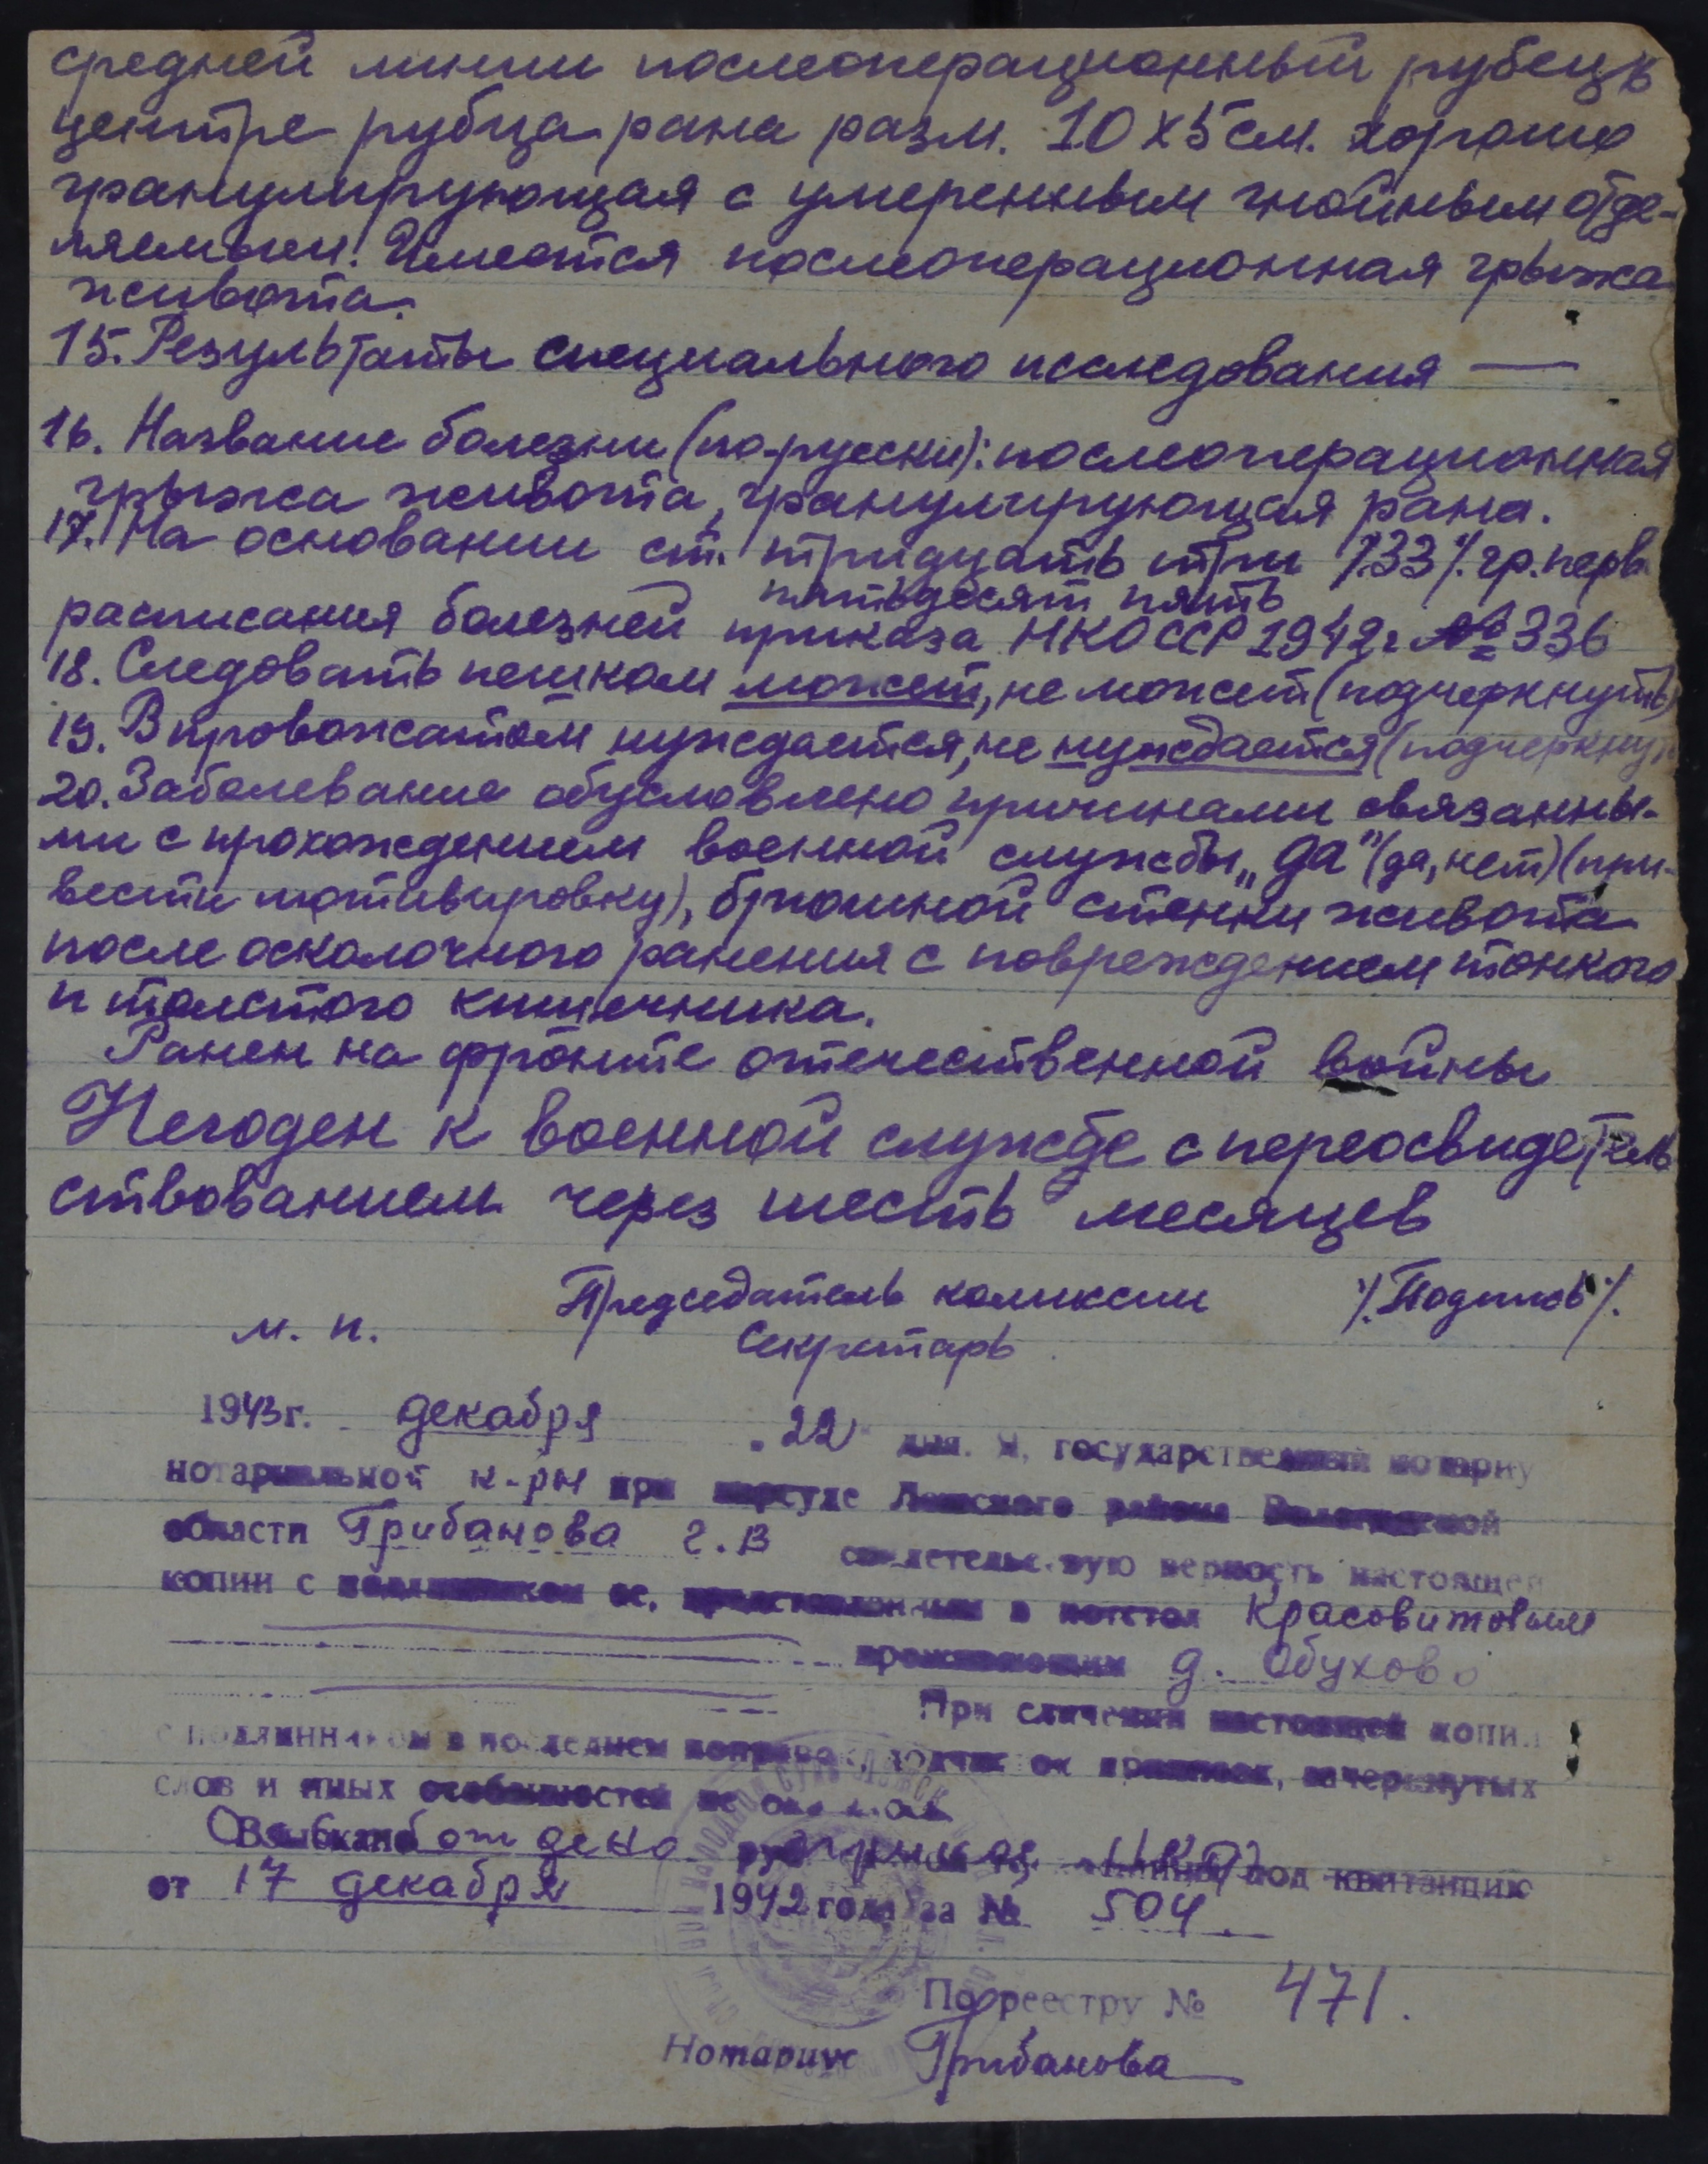 средней линии послеоперационный рубец в
центре рубца рана разм. 10 х 5 см. хорошо
гранулирующая с умеренным гнойным отде-
ляемым. Имеется послеоперационная грыжа
живота.
15. Результаты специального исследования —
16. Название болезни (по-русски): послеоперационная
грыжа живота, гранулирующая рана.
17. На основании ст. тридцать три /33/ гр. перв
пятьдесят пять
расписания болезней приказа НКО СССР 1942 г № 336
18. Следовать пешком может, не может (подчеркнуть)
19. В провожатом нуждается, не нуждается (подчеркнуть
20. Заболевание обусловлено причинами связанны-
ми с прохождением военной службы „да" (да, нет) (при-
вести мотивировку), брюшной стенки живота
после осколочного ранения с повреждением тонкого
и толстого кишечника.
Ранен на фронте отечественной войны
Негоден к военной службе с переосвидетель
ствованием через шесть месяцев
Председатель комиссии /Подпись/.
м. п.
Секретарь
1943 г. декабря „22" дня. Я, государственный нотариу
нотариальной к-ры при нарсуде Лежского района Вологодской
области Грибанова Г. В свидетельствую верность настоящей
копии с подлинником ее, представленным в нотстол Красовитовым
проживающим д. Обухово
При сличении настоящей копии
с подлинником в последнем поправок, подчисток приписок, зачеркнутых
слов и иных особенностей не оказалось
Взыскано руб под квитанцию
от 17 декабря 1942 года за № 504
По реестру № 471.
Нотариус Грибанова